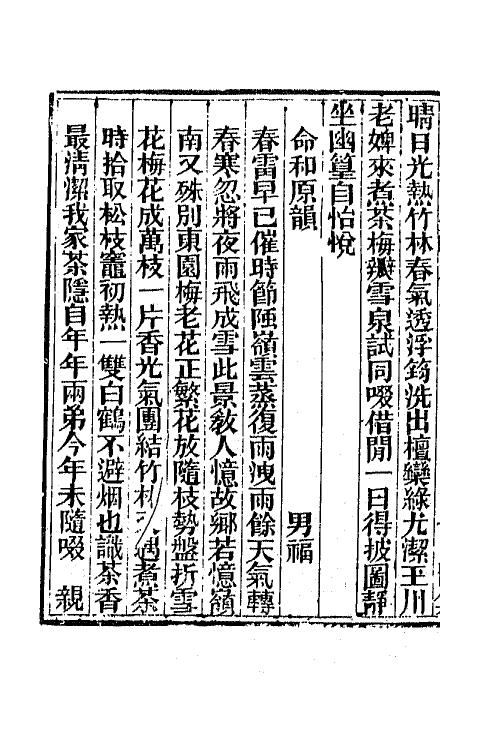 晴日光熱竹林春氣透浮筠洗出檀欒綠尤潔玉川
老婢來煮茶梅瓣雪泉試同啜借閒一日得披圖靜
坐幽篁自怡悅
命和原韻 男福
春雷早已催時節嶺雲蒸復雨洩雨餘天氣轉
春寒忽將夜雨飛成雪此景敎人憶故鄉若憶嶺
南又殊別東園梅老花正繁花放隨枝勢盤折雪
花梅花成萬枝一片香光氣團結竹林遇煮茶
時拾取松枝竈初熱一雙白鶴不避烟也識茶香
最清潔我家茶隱自年年兩弟今年未隨啜 親